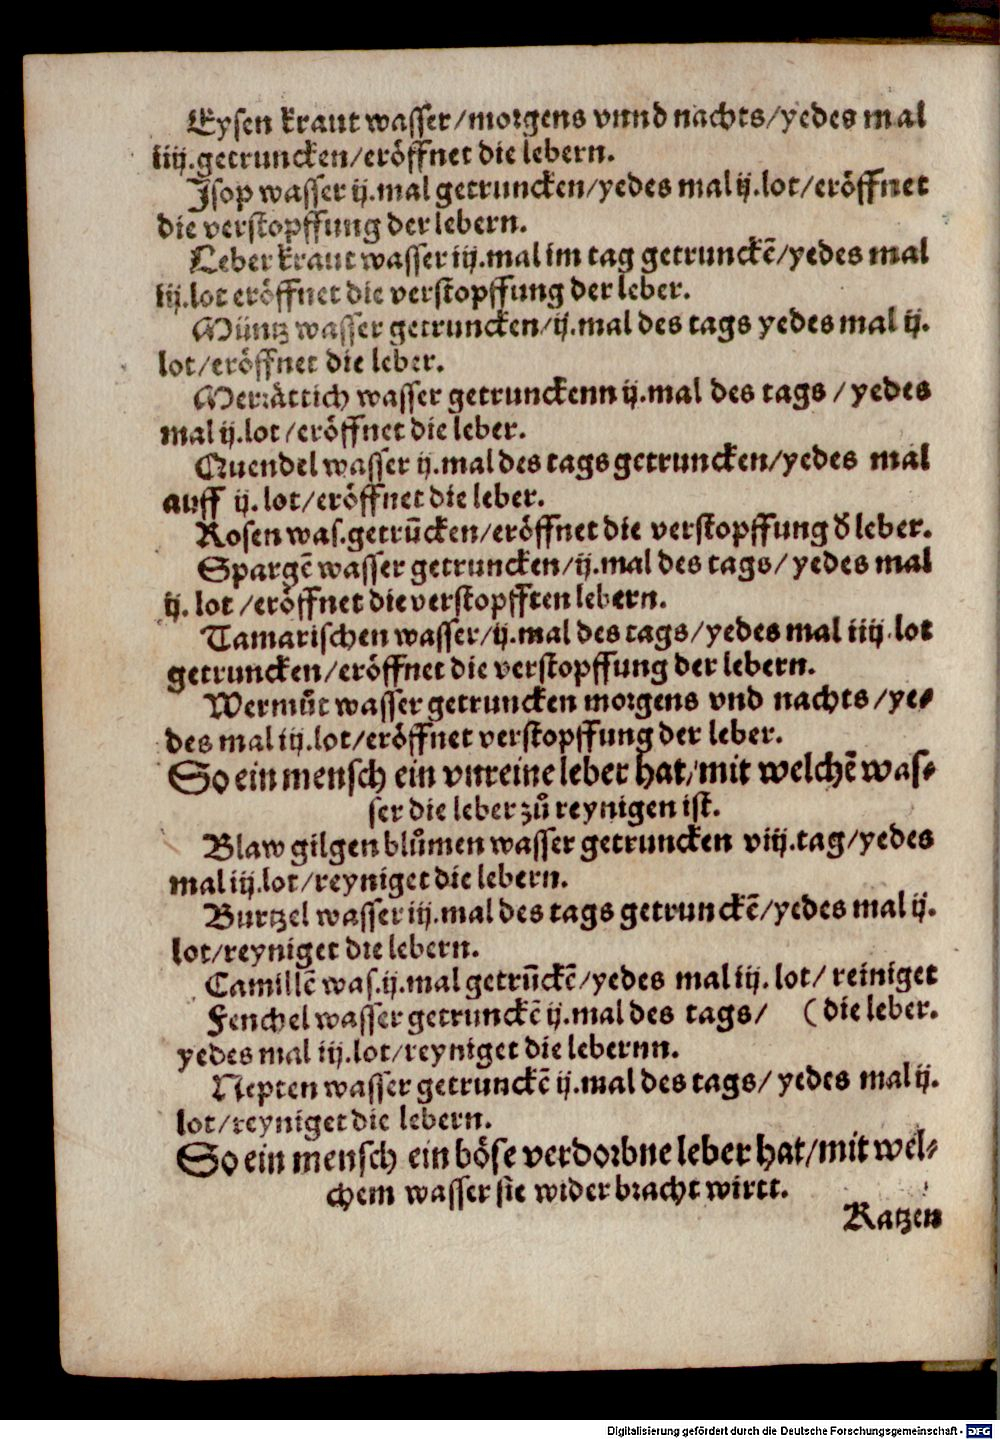 Eysen kraut wasser/morgens vnnd nachts/yedes mal
iiij.getruncken/eröffnet die lebern.
Jsop wasser ij.mal getruncken/yedes mal ij.lot/eröffnet
die verstopffung der lebern.
Leber kraut wasser iij.mal im tag getrunckē/yedes mal
iij.lot eröffnet die verstopffung der leber.
Müntz wasser getruncken/ij.mal des tags yedes mal ij.
lot/eröffnet die leber.
Merrättich wasser getrunckenn ij.mal des tags / yedes
mal ij.lot/eröffnet die leber.
Quendel wasser ij.mal des tags getruncken/yedes mal
auff ij. lot/eröffnet die leber.
Rosen was.getrūcken/eröffnet die verstopffung d̕ leber.
Spargē wasser getruncken/ij.mal des tags/ yedes mal
ij. lot /eröffnet die verstopfften lebern.
Tamarischen wasser/ij.mal des tags/yedes mal iiij.lot
getruncken/eröffnet die verstopffung der lebern.
Wermůt wasser getruncken morgens vnd nachts/ye-
des mal iij.lot/eröffnet verstopffung der leber.
So ein mensch ein vnreine leber hat/mit welchē was-
ser die leber zů reynigen ist.
Blaw gilgen blůmen wasser getruncken viij.tag/yedes
mal iij.lot/reyniget die lebern.
Burtzel wasser iij.mal des tags getrunckē/yedes mal ij.
lot/reyniget die lebern.
Camillē was.ij.mal getrūckē/yedes mal iij. lot/ reiniget
Fenchel wasser getrunckē ij.mal des tags/ (die leber.
yedes mal iij.lot/reyniget die lebernn.
Nepten wasser getrunckē ij.mal des tags/ yedes mal ij.
lot/reyniget die lebern.
So ein mensch ein böse verdorbne leber hat/mit wel-
chem wasser sie wider bracht wirtt.
Katzen
Digitalisierung gefördert durch die Deutsche Forschungsgemeinschaft - DFG